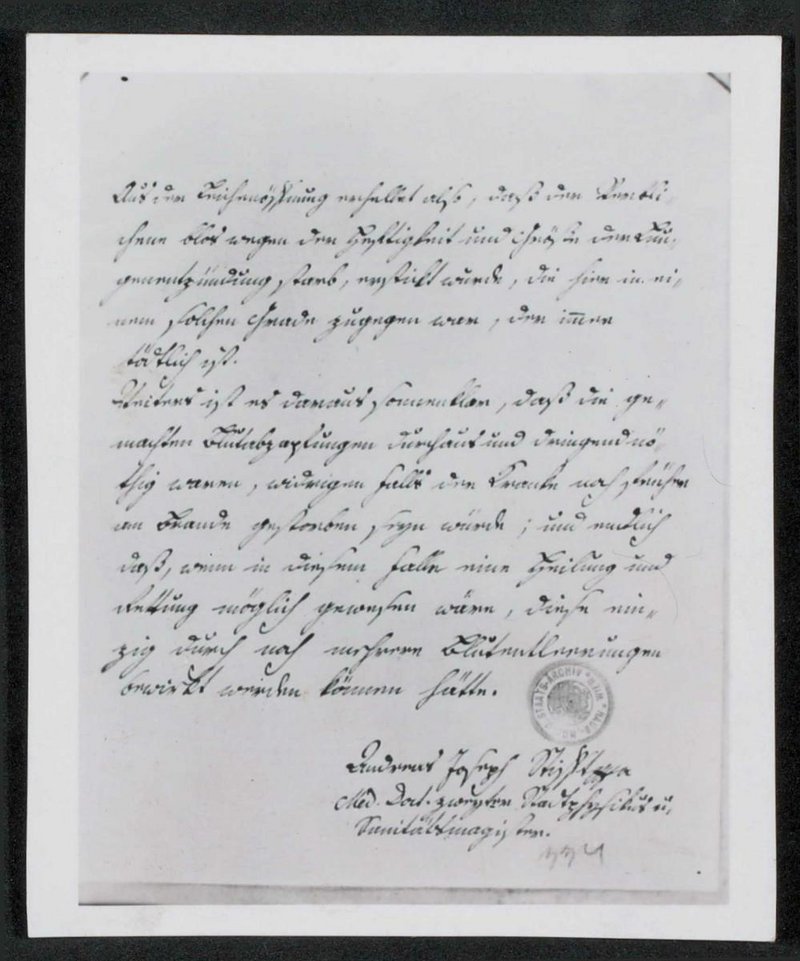 Aus der Leichenöffnung erhellet also, daß der Verbli-
chene blos wegen der Heftigkeit und Größe der Lun-
genentzündung starb, erstickt wurde, die hier in ei-
nem solchen Grade zugegen war, der immer
tödtlich ist.
Weiters ist es daraus sonnenklar, daß die ge-
machten Blutabzapfungen durchaus und dringend nö-
thig waren, widrigen falls der Kranke noch früher
am Brande gestorben seyn würde; und endlich
daß, wenn in diesem Falle eine Heilung und
Rettung möglich gewesen wäre, diese ein-
zig durch noch mehrere Blutentleerungen
bewirkt werden können hätte.
STAATS-ARCHIV
Andreas Joseph
Med. Doct. zweyter Stadtphysikus u.
Sanitätsmagister.